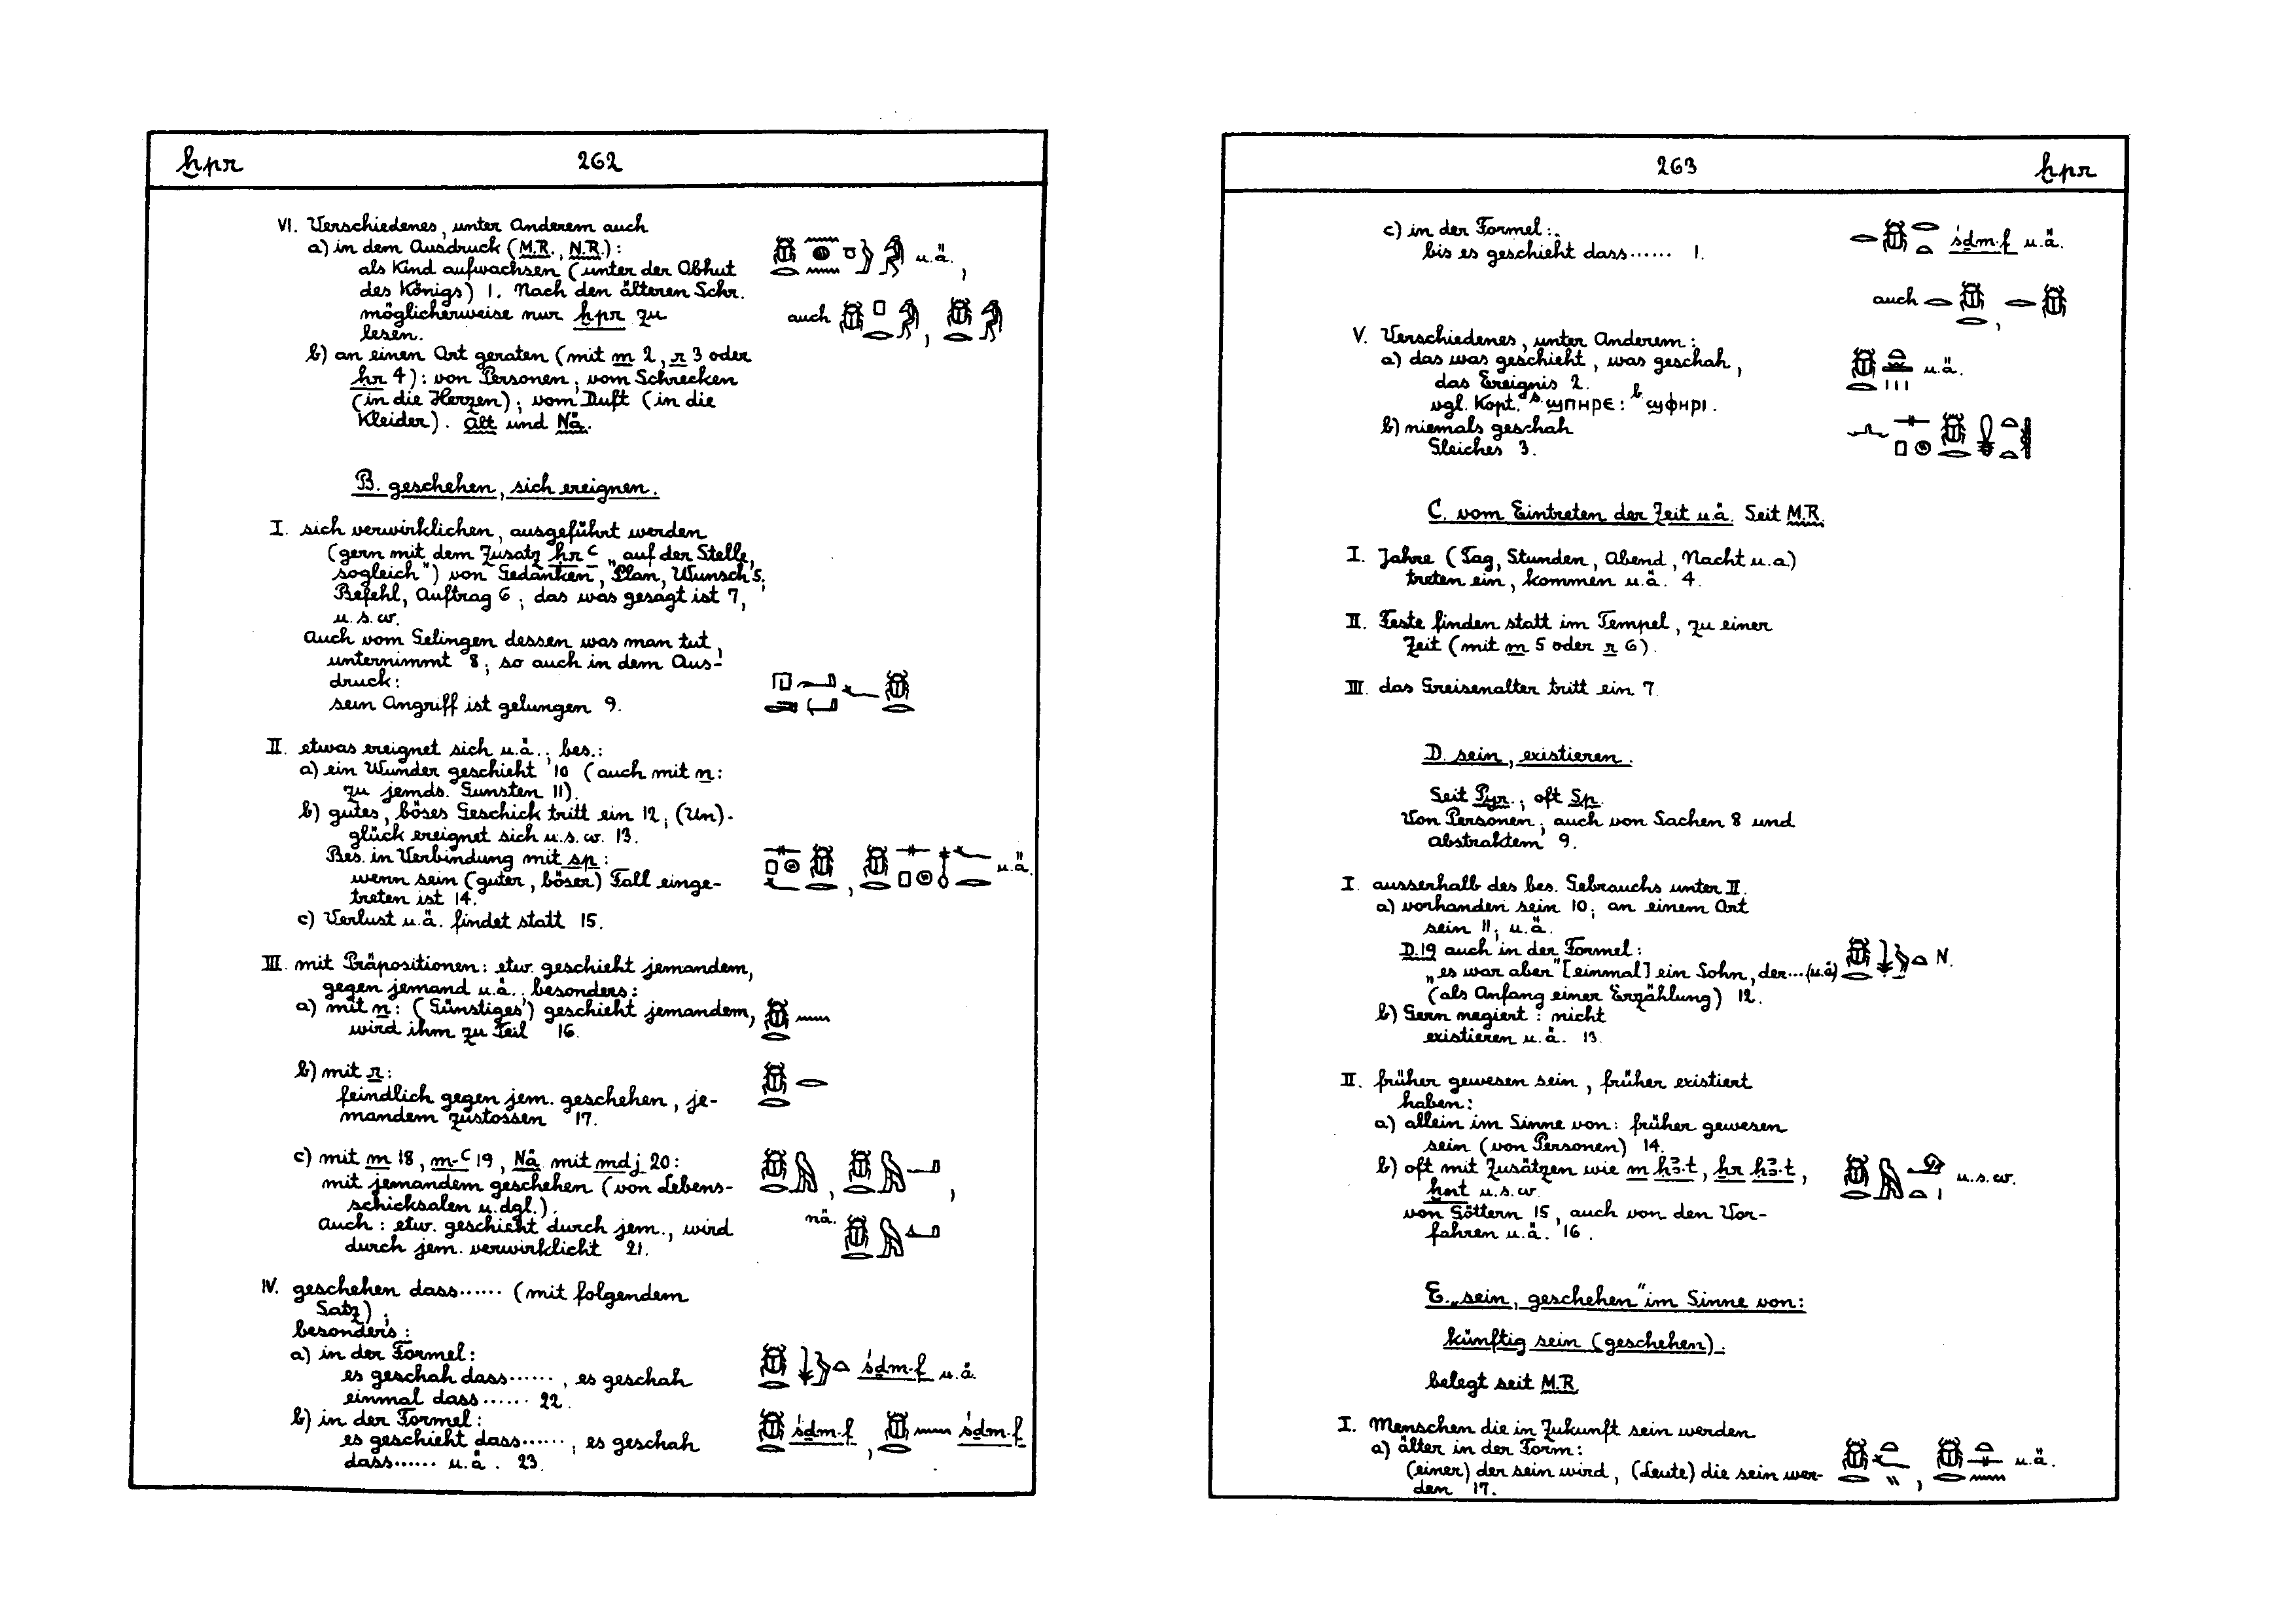 ḫpr 262
VI. Verschiedenes, unter Anderem auch
a) in dem Ausdruck (M.R., N.R.): u.ä.,
als Kind aufwachsen (unter der Obhut
des Königs) 1. Nach den älteren Schr.
möglicherweise nur ḫpr zu auch ,
lesen.
b) an einen Ort geraten (mit m 2, r 3 oder
ḥr 4): von Personen; vom Schrecken
(in die Herzen); vom Duft (in die
Kleider). Alt und Nä.
B. geschehen, sich ereignen.
I. sich verwirklichen, ausgeführt werden
(gern mit dem Zusatz ḥr ꜥ „auf der Stelle,
sogleich") von Gedanken, Plan, Wunsch 5;
Befehl, Auftrag 6; das was gesagt ist 7,
u.s.w.
Auch vom Gelingen dessen was man tut,
unternimmt 8; so auch in dem Aus-
druck:
sein Angriff ist gelungen 9.
II. etwas ereignet sich u.ä.; bes.:
a) ein Wunder geschieht 10 (auch mit n:
zu jemds. Gunsten 11).
b) gutes, böses Geschick tritt ein 12; (Un)-
glück ereignet sich u.s.w. 13.
Bes. in Verbindung mit sp: , u.ä.
wenn sein (guter, böser) Fall einge-
treten ist 14.
c) Verlust u.ä. findet statt 15.
III. mit Präpositionen: etw. geschieht jemandem,
gegen jemand u.ä.; besonders:
a) mit n: (Günstiges) geschieht jemandem,
wird ihm zu Teil 16.
b) mit r:
feindlich gegen jem. geschehen, je-
mandem zustossen 17.
c) mit m 18, m-ꜥ 19, Nä mit mdj 20: , ,
mit jemandem geschehen (von Lebens-
schicksalen u. dgl.).
Auch: etw. geschieht durch jem., wird nä.
durch jem. verwirklicht 21.
IV. geschehen dass...... (mit folgendem
Satz);
besonders:
a) in der Formel:
es geschah dass......, es geschah śḏm.f u.ä.
einmal dass...... 22.
b) in der Formel:
es geschieht dass......; es geschah śḏm.f, śḏm.f
dass...... u.ä. 23.
263 ḫpr
c) in der Formel: śḏm.f u.ä.
bis es geschieht dass...... 1.
auch ,
V. Verschiedenes, unter Anderem:
a) das was geschieht, was geschah, u.ä.
das Ereignis 2.
vgl. Kopt. S ϣⲡⲏⲣⲉ: B ϣⲫⲏⲣⲓ.
b) niemals geschah
Gleiches 3.
C. vom Eintreten der Zeit u.ä. Seit M.R.
I. Jahre (Tag, Stunden, Abend, Nacht u.a)
treten ein, kommen u.ä. 4.
II. Feste finden statt im Tempel, zu einer
Zeit (mit m 5 oder r 6).
III. das Greisenalter tritt ein 7.
D. sein, existieren.
Seit Pyr.; oft Sp.
Von Personen; auch von Sachen 8 und
Abstraktem 9.
I. ausserhalb des bes. Gebrauchs unter II.
a) vorhanden sein 10; an einem Ort
sein 11; u.ä.
D.19 auch in der Formel: N.
„es war aber" [einmal] ein Sohn, der...(u.ä)
(als Anfang einer Erzählung) 12.
b) Gern negiert: nicht
existieren u.ä. 13.
II. früher gewesen sein, früher existiert
haben:
a) allein im Sinne von: früher gewesen
sein (von Personen) 14.
b) oft mit Zusätzen wie m ḥꜣ.t, ḥr ḥꜣ.t, u.s.w.
ḫnt u.s.w.
von Göttern 15, auch von den Vor-
fahren u.ä. 16.
E. „sein, geschehen" im Sinne von:
künftig sein (geschehen).
belegt seit M.R.
I. Menschen die in Zukunft sein werden
a) älter in der Form: , u.ä.
(einer) der sein wird, (Leute) die sein wer-
den 17.